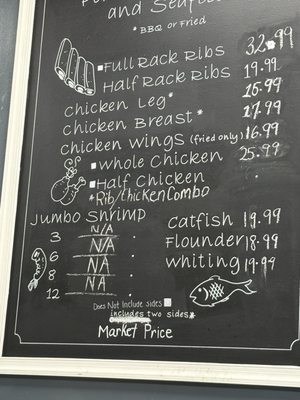 and Seafood
*BBQ or Fried
Full Rack Ribs 32.99
Half Rack Ribs 19.99
Chicken Leg* 15.99
Chicken Breast* 17.99
Chicken Wings (fried only) 16.99
Whole Chicken 25.99
Half Chicken
*Rib/Chicken Combo
Jumbo Shrimp
3 N/A
6 NA
8 NA
12 NA
Catfish 19.99
Flounder 18.99
Whiting 19.99
Does Not Include Sides
includes two sides*
Market Price